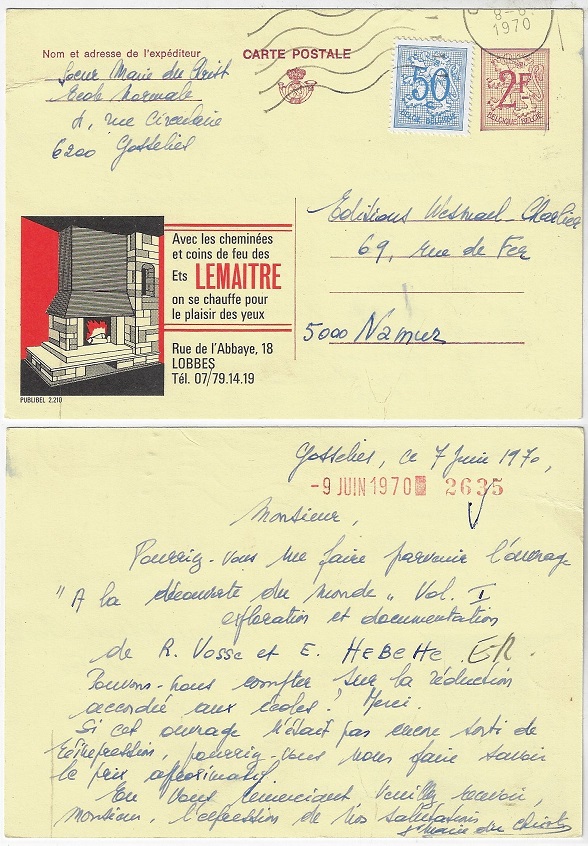 8-6.
1970
Nom et adresse de l'expéditeur
CARTE POSTALE
50
BELGIQUE-BELGIE
2F
BELGIQUE-BELGIE
Soeur Marie du Christ
Ecole Normale
rue Circulaire
6200 Gosselies
Editions Wesmael-Charlier
69, rue de Fer
5000 Namur
Avec les cheminées
et coins de feu des
Ets LEMAITRE
on se chauffe pour
le plaisir des yeux
Rue de l'Abbaye, 18
LOBBES
Tél. 07/79.14.19
PUBLIBEL 2.210
Gosselies, ce 7 Juin 1970,
-9 JUIN 1970 2635
Monsieur,
Pourriez-vous me faire parvenir l'ouvrage
"A la découverte du monde" Vol. I
exploration et documentation
de R. Vosse et E. HEBEHE. ER.
Pouvons-nous compter sur la réduction
accordée aux écoles? Merci.
Si cet ouvrage n'était pas encore sorti de
réimpression, pourriez-vous nous faire savoir
le prix approximatif.
En vous remerciant veuillez recevoir,
Monsieur, l'expression de nos salutations
Sr Marie du Christ